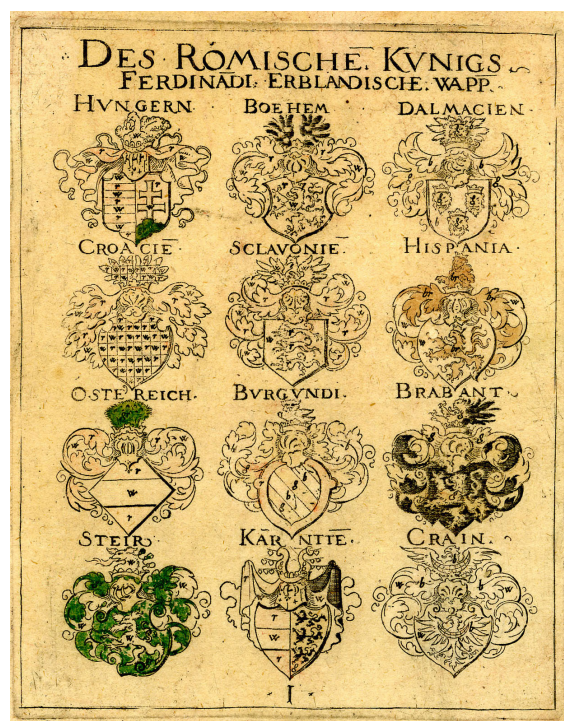 DES · RÓMISCHE̅. KVNIGS
FERDINĀDI. ERBLANDISCHE. WAPP.
HVNGERN BOEHEM DALMACIEN ·
CROACIE̅ · SCLAVONIE̅ HISPANIA ·
OSTE REICH. BVRGVNDI. BRABANT
STEIR KĀRNTTE̅. CRAIN.
I